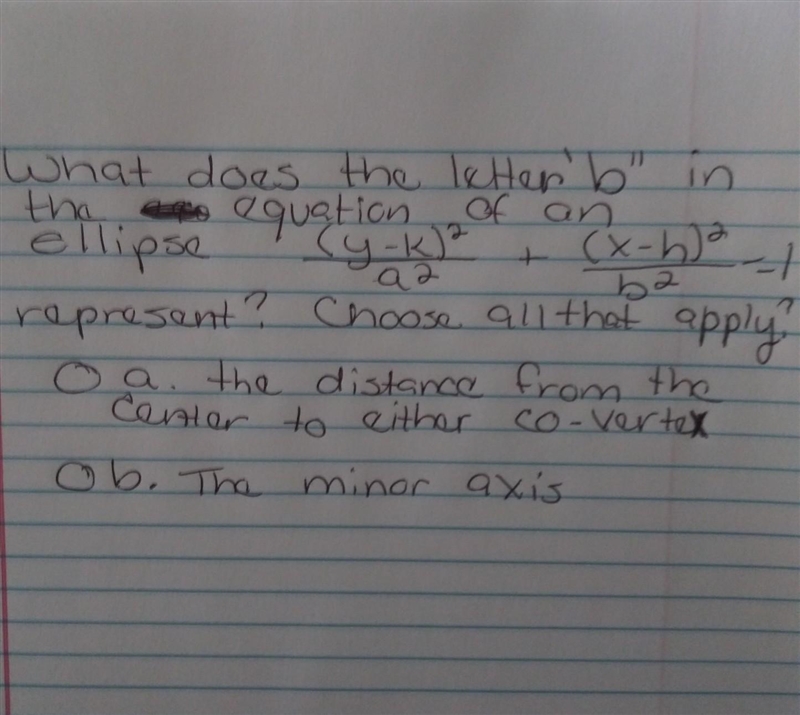 What does the letter "b" in
the equation of an
ellipse (y-k)²/a² + (x-h)²/b² = 1
represent? Choose all that apply?
○ a. the distance from the
center to either co-vertex
○ b. The minor axis